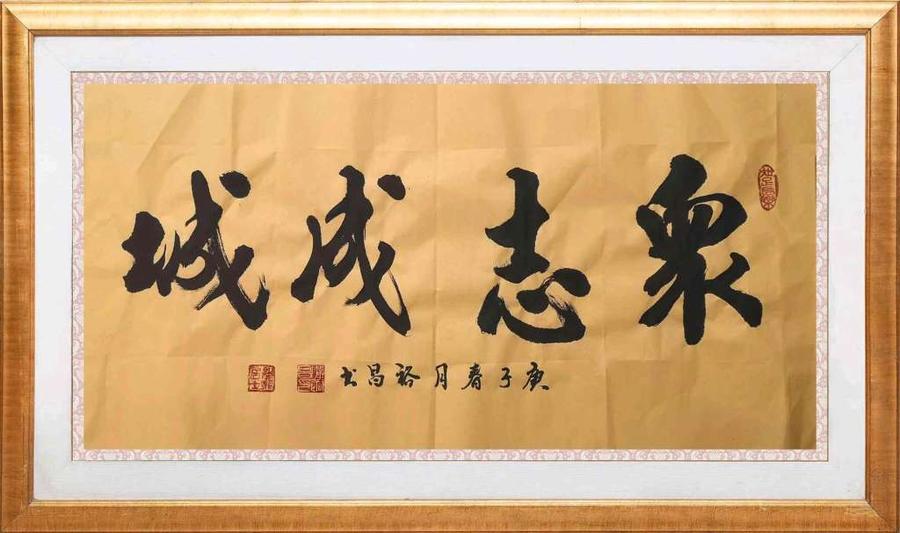 眾志成城
庚子春月裕昌书